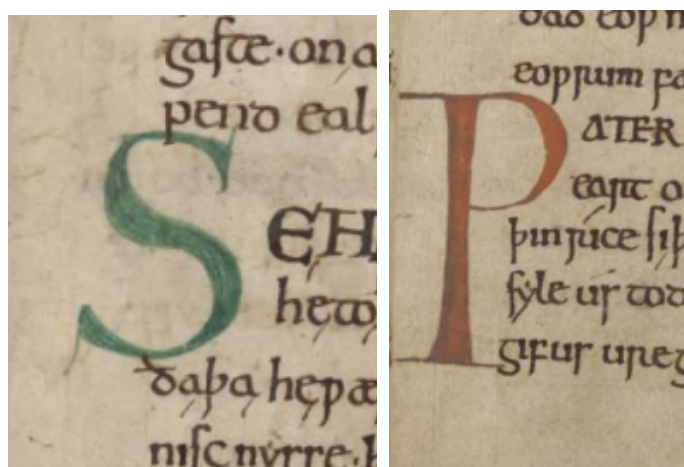 gaſte·on a
eal
SEH
he to
ða þa he ƿæ
niſc nyrre.
eoƿrum fa
PATER
eart o
þin rice ſi þ
ſyle us to d
gif us ure g